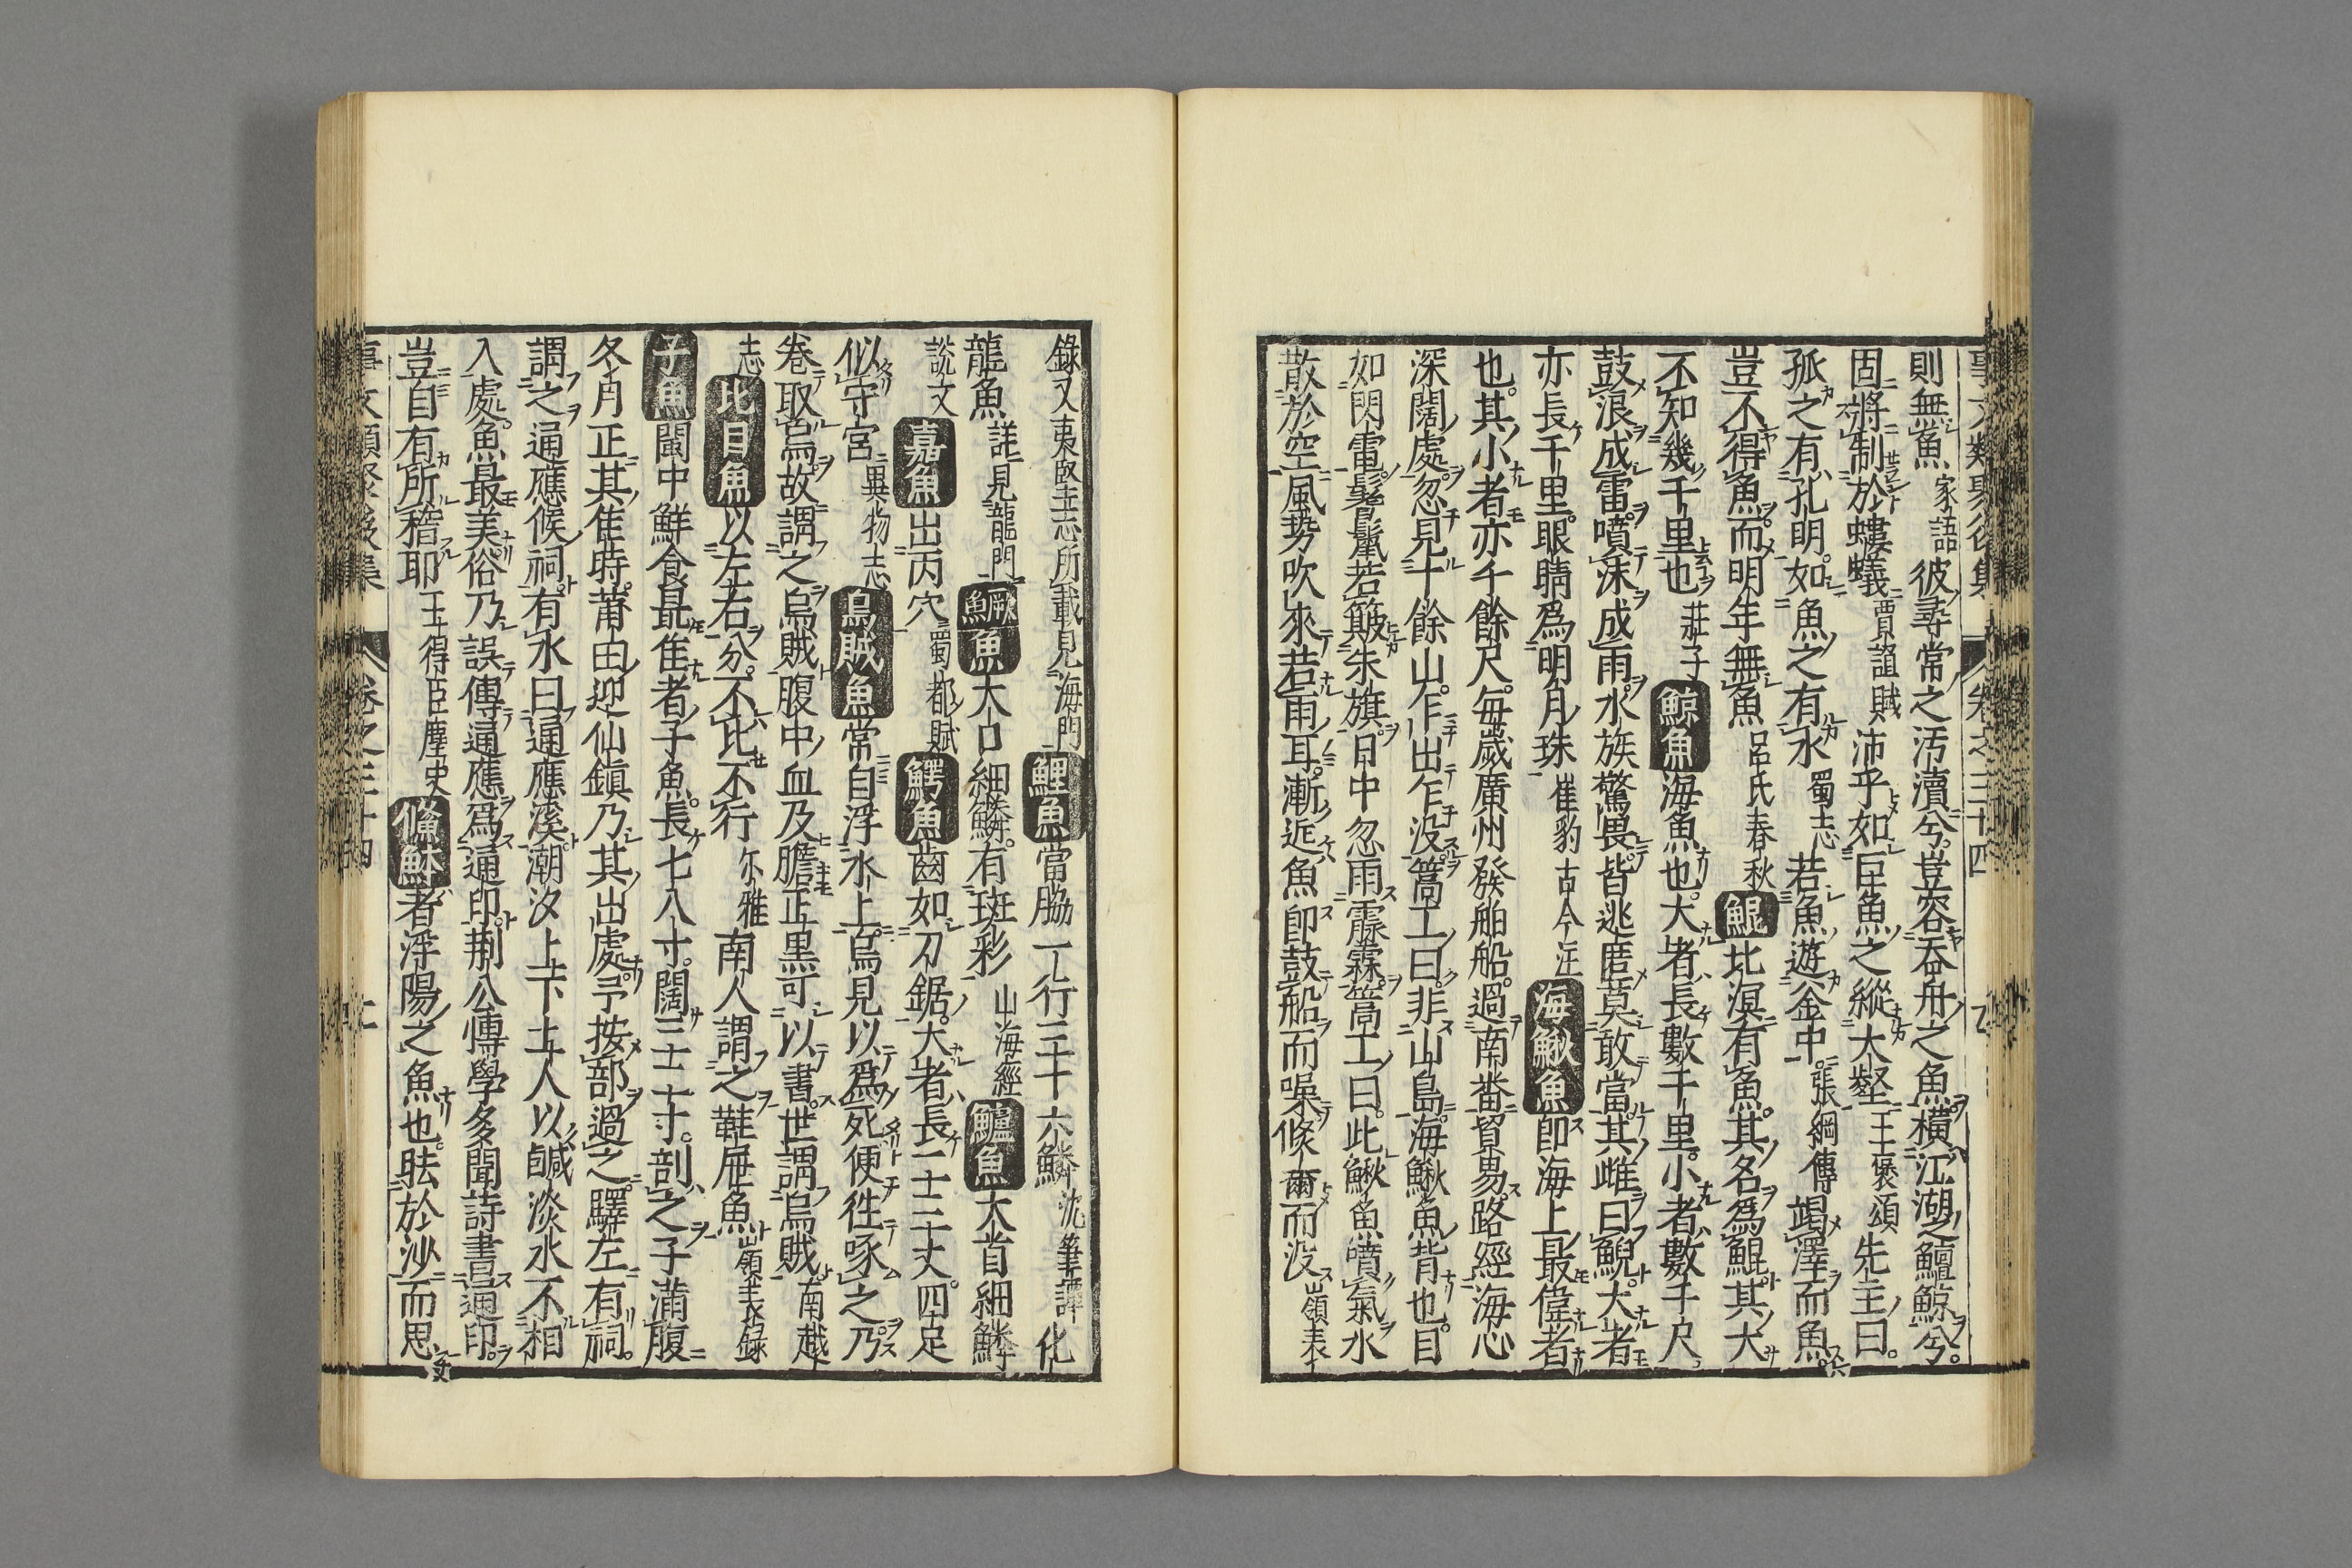 則無魚家語彼尋常之汚瀆兮豈容呑舟之魚橫江湖之鱣鯨兮
固將制於螻蟻賈誼賦沛乎如巨魚之縱大壑王褒頌先主曰
孤之有孔明如魚之有水蜀志若魚遊釜中張綱傳竭澤而魚
豈不得魚而明年無魚呂氏春秋鯤北溟有魚其名爲鯤其大
不知幾千里也莊子鯨魚海魚也大者長數千里小者數千尺
鼓浪成雷噴沫成雨水族驚畏皆逃匿莫敢當其雌曰鯢大者
亦長千里眼睛爲明月珠崔豹古今注海鰍魚卽海上最偉者
也其小者亦千餘尺每歲廣州發舶船過南番貿易路經海心
深闊處忽見十餘山乍出乍没篙工曰非山島海鰍魚背也目
如閃電鬐鬣若簸朱旗日中忽雨霢霖篙工曰此鰍魚噴氣水
散於空風勢吹來若雨耳漸近魚卽鼓船而噪倐爾而没嶺表
錄又夷堅志所載見海門鯉魚當脇一行三十六鱗沈筆譚化
龍魚詳見龍門鱖魚大口細鱗有班彩山海經鱸魚大首細鱗
說文嘉魚出丙穴蜀都賦鰐魚齒如刀鋸大者長一二丈四足
似守宮異物志烏賊魚常自浮水上烏見以爲死便徃啄之乃
卷取烏故謂之烏賊腹中血及膽正黑可以書世謂烏賊南越
志比目魚以左右分不比不行尔雅南人謂之鞋屉魚嶺表録
子魚閩中鮮食最隹者子魚長七八寸闊二三寸剖之子滿腹
冬月正其隹時莆田迎仙鎭乃其出處予按部過之驛左有祠
謂之通應候祠有水曰通應溪潮汐上下土人以鹹淡水不相
入處魚最美俗乃誤傳通應爲通印荆公愽學多聞詩書通印
豈自有所稽耶王得臣麈史鯈䱁者浮陽之魚也胠於沙而思
事文類聚後集 卷之三十四